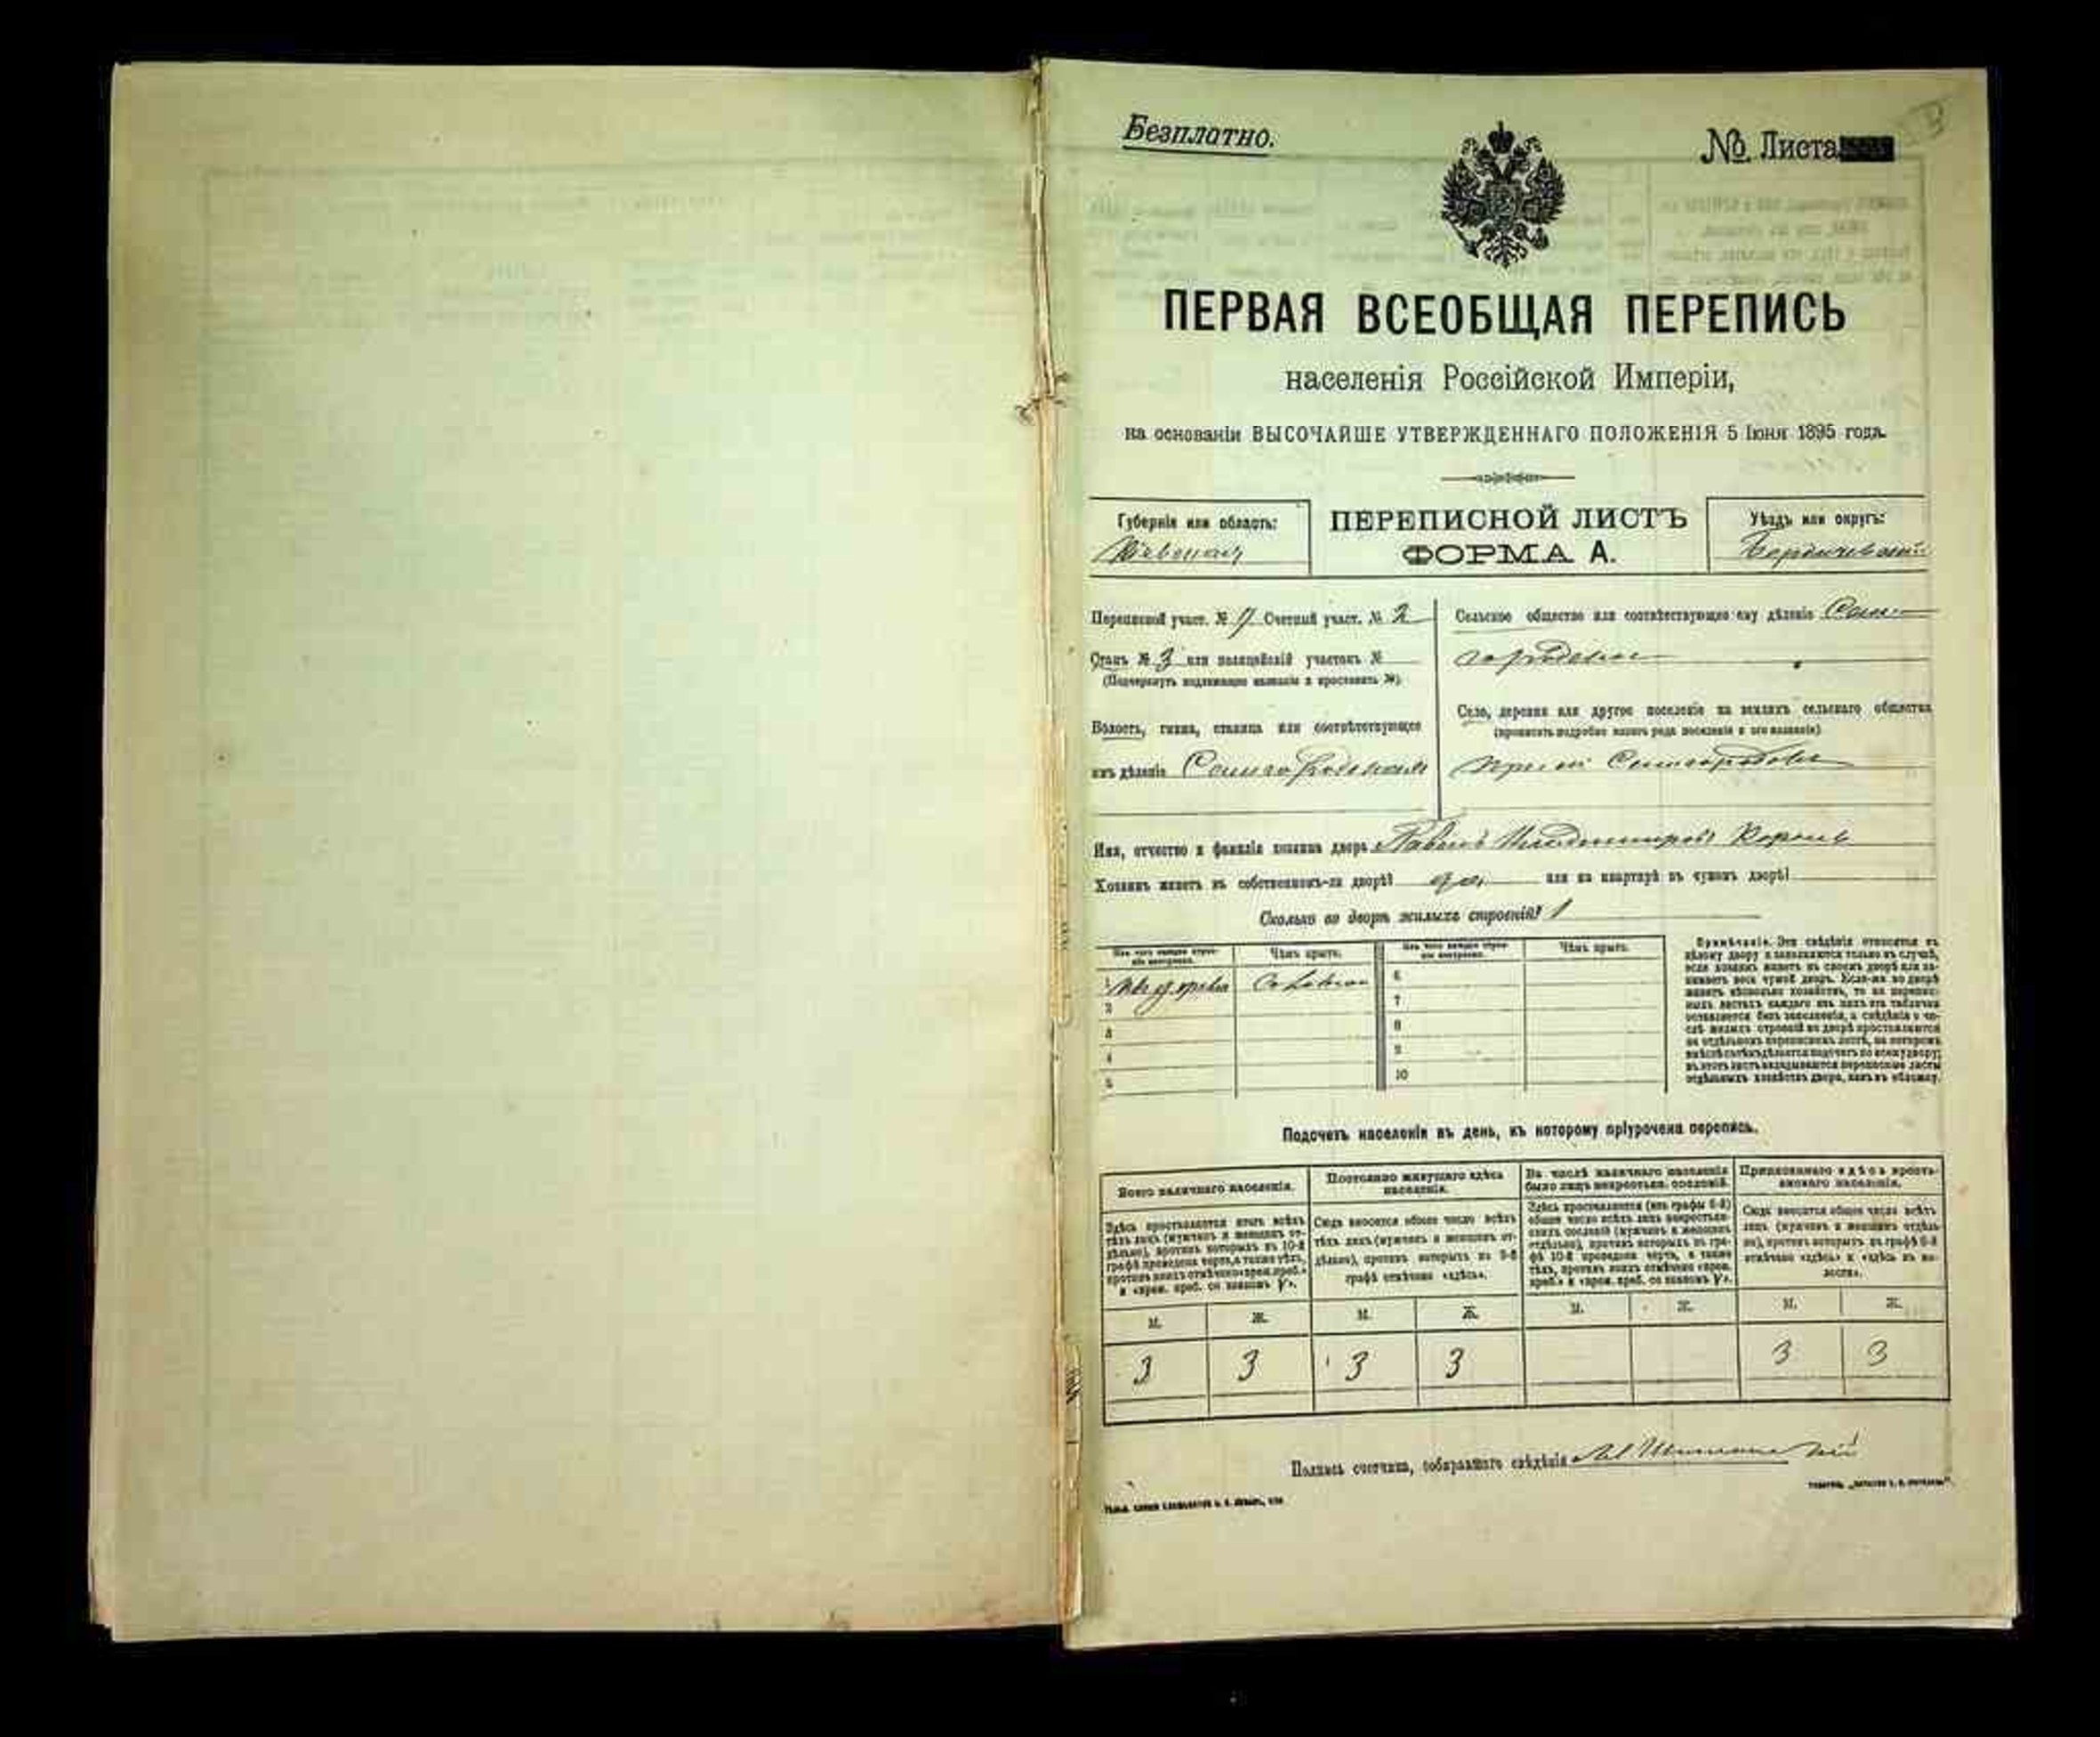 Безплатно.
№ Листа
ПЕРВАЯ ВСЕОБЩАЯ ПЕРЕПИСЬ
населенія Россійской Имперіи,
на основаніи ВЫСОЧАЙШЕ УТВЕРЖДЕННАГО ПОЛОЖЕНІЯ 5 Іюня 1895 года.
Губернія или область:
Кіевская
ПЕРЕПИСНОЙ ЛИСТЪ
ФОРМА А.
Уѣздъ или округъ:
Бердичевскій
Переписной участ. № Счетный участ. № 2
Станъ № 3 или полицейскій участокъ №
(Подчеркнуть надлежащее названіе и проставить №).
Волость, гмина, станица или соотвѣтствующее
имъ дѣленіе Самгородская
Сельское общество или соотвѣтствующее ему дѣленіе Сам-
городское
Село, деревня или другое поселеніе на земляхъ сельскаго общества
(прописать подробно какого рода поселеніе и его названіе)
Самгородокъ
Имя, отчество и фамилія хозяина двора Павелъ Король
Хозяинъ живетъ въ собственномъ-ли дворѣ? да или на квартирѣ въ чужомъ дворѣ?
Сколько во дворѣ жилыхъ строеній? 1
Изъ чего каждое строе-
ніе построено.
Чѣмъ крыто.
Изъ чего каждое строе-
ніе построено.
Чѣмъ крыто.
1 Изъ дерева Соломою 6
2 7
3 8
4 9
5 10
Примѣчаніе. Эти свѣдѣнія относятся къ
цѣлому двору и заполняются только въ случаѣ,
если хозяинъ живетъ въ своемъ дворѣ или за-
нимаетъ весь чужой дворъ. Если-же во дворѣ
живетъ нѣсколько хозяйствъ, то на перепис-
ныхъ листахъ каждаго изъ нихъ эта табличка
оставляется безъ заполненія, а свѣдѣнія о чи-
слѣ жилыхъ строеній во дворѣ проставляются
на отдѣльномъ переписномъ листѣ, на которомъ
вмѣстѣ съ тѣмъ дѣлается подсчетъ по всему двору;
въ этотъ листъ вкладываются переписные листы
отдѣльныхъ хозяйствъ двора, какъ въ обложку.
Подсчетъ населенія въ день, къ которому пріурочена перепись.
Всего наличнаго населенія.
Здѣсь проставляется итогъ всѣхъ
тѣхъ лицъ (мужчинъ и женщинъ от-
дѣльно), противъ которыхъ въ 10-й
графѣ проведена черта, а также тѣхъ,
противъ коихъ отмѣчено «врем. преб.»
и «врем. преб. со знакомъ V».
Постоянно живущаго здѣсь
населенія.
Сюда вносится общее число всѣхъ
тѣхъ лицъ (мужчинъ и женщинъ от-
дѣльно), противъ которыхъ въ 9-й
графѣ отмѣчено «здѣсь».
Въ числѣ наличнаго населенія
было лицъ некрестьян. сословій.
Здѣсь проставляется (изъ графы 6-й)
общее число всѣхъ лицъ некрестьян-
скихъ сословій (мужчинъ и женщинъ
отдѣльно), противъ которыхъ въ гра-
фѣ 10-й проведена черта, а также
тѣхъ, противъ коихъ отмѣчено «врем.
преб.» и «врем. преб. со знакомъ V».
Приписаннаго здѣсь кресть-
янскаго населенія.
Сюда вносится общее число всѣхъ
лицъ (мужчинъ и женщинъ отдѣль-
но), противъ которыхъ въ графѣ 8-й
отмѣчено «здѣсь» и «здѣсь въ во-
лости».
М. Ж. М. Ж. М. Ж. М. Ж.
3 3 3 3 3 3
Подпись счетчика, собиравшаго свѣдѣнія